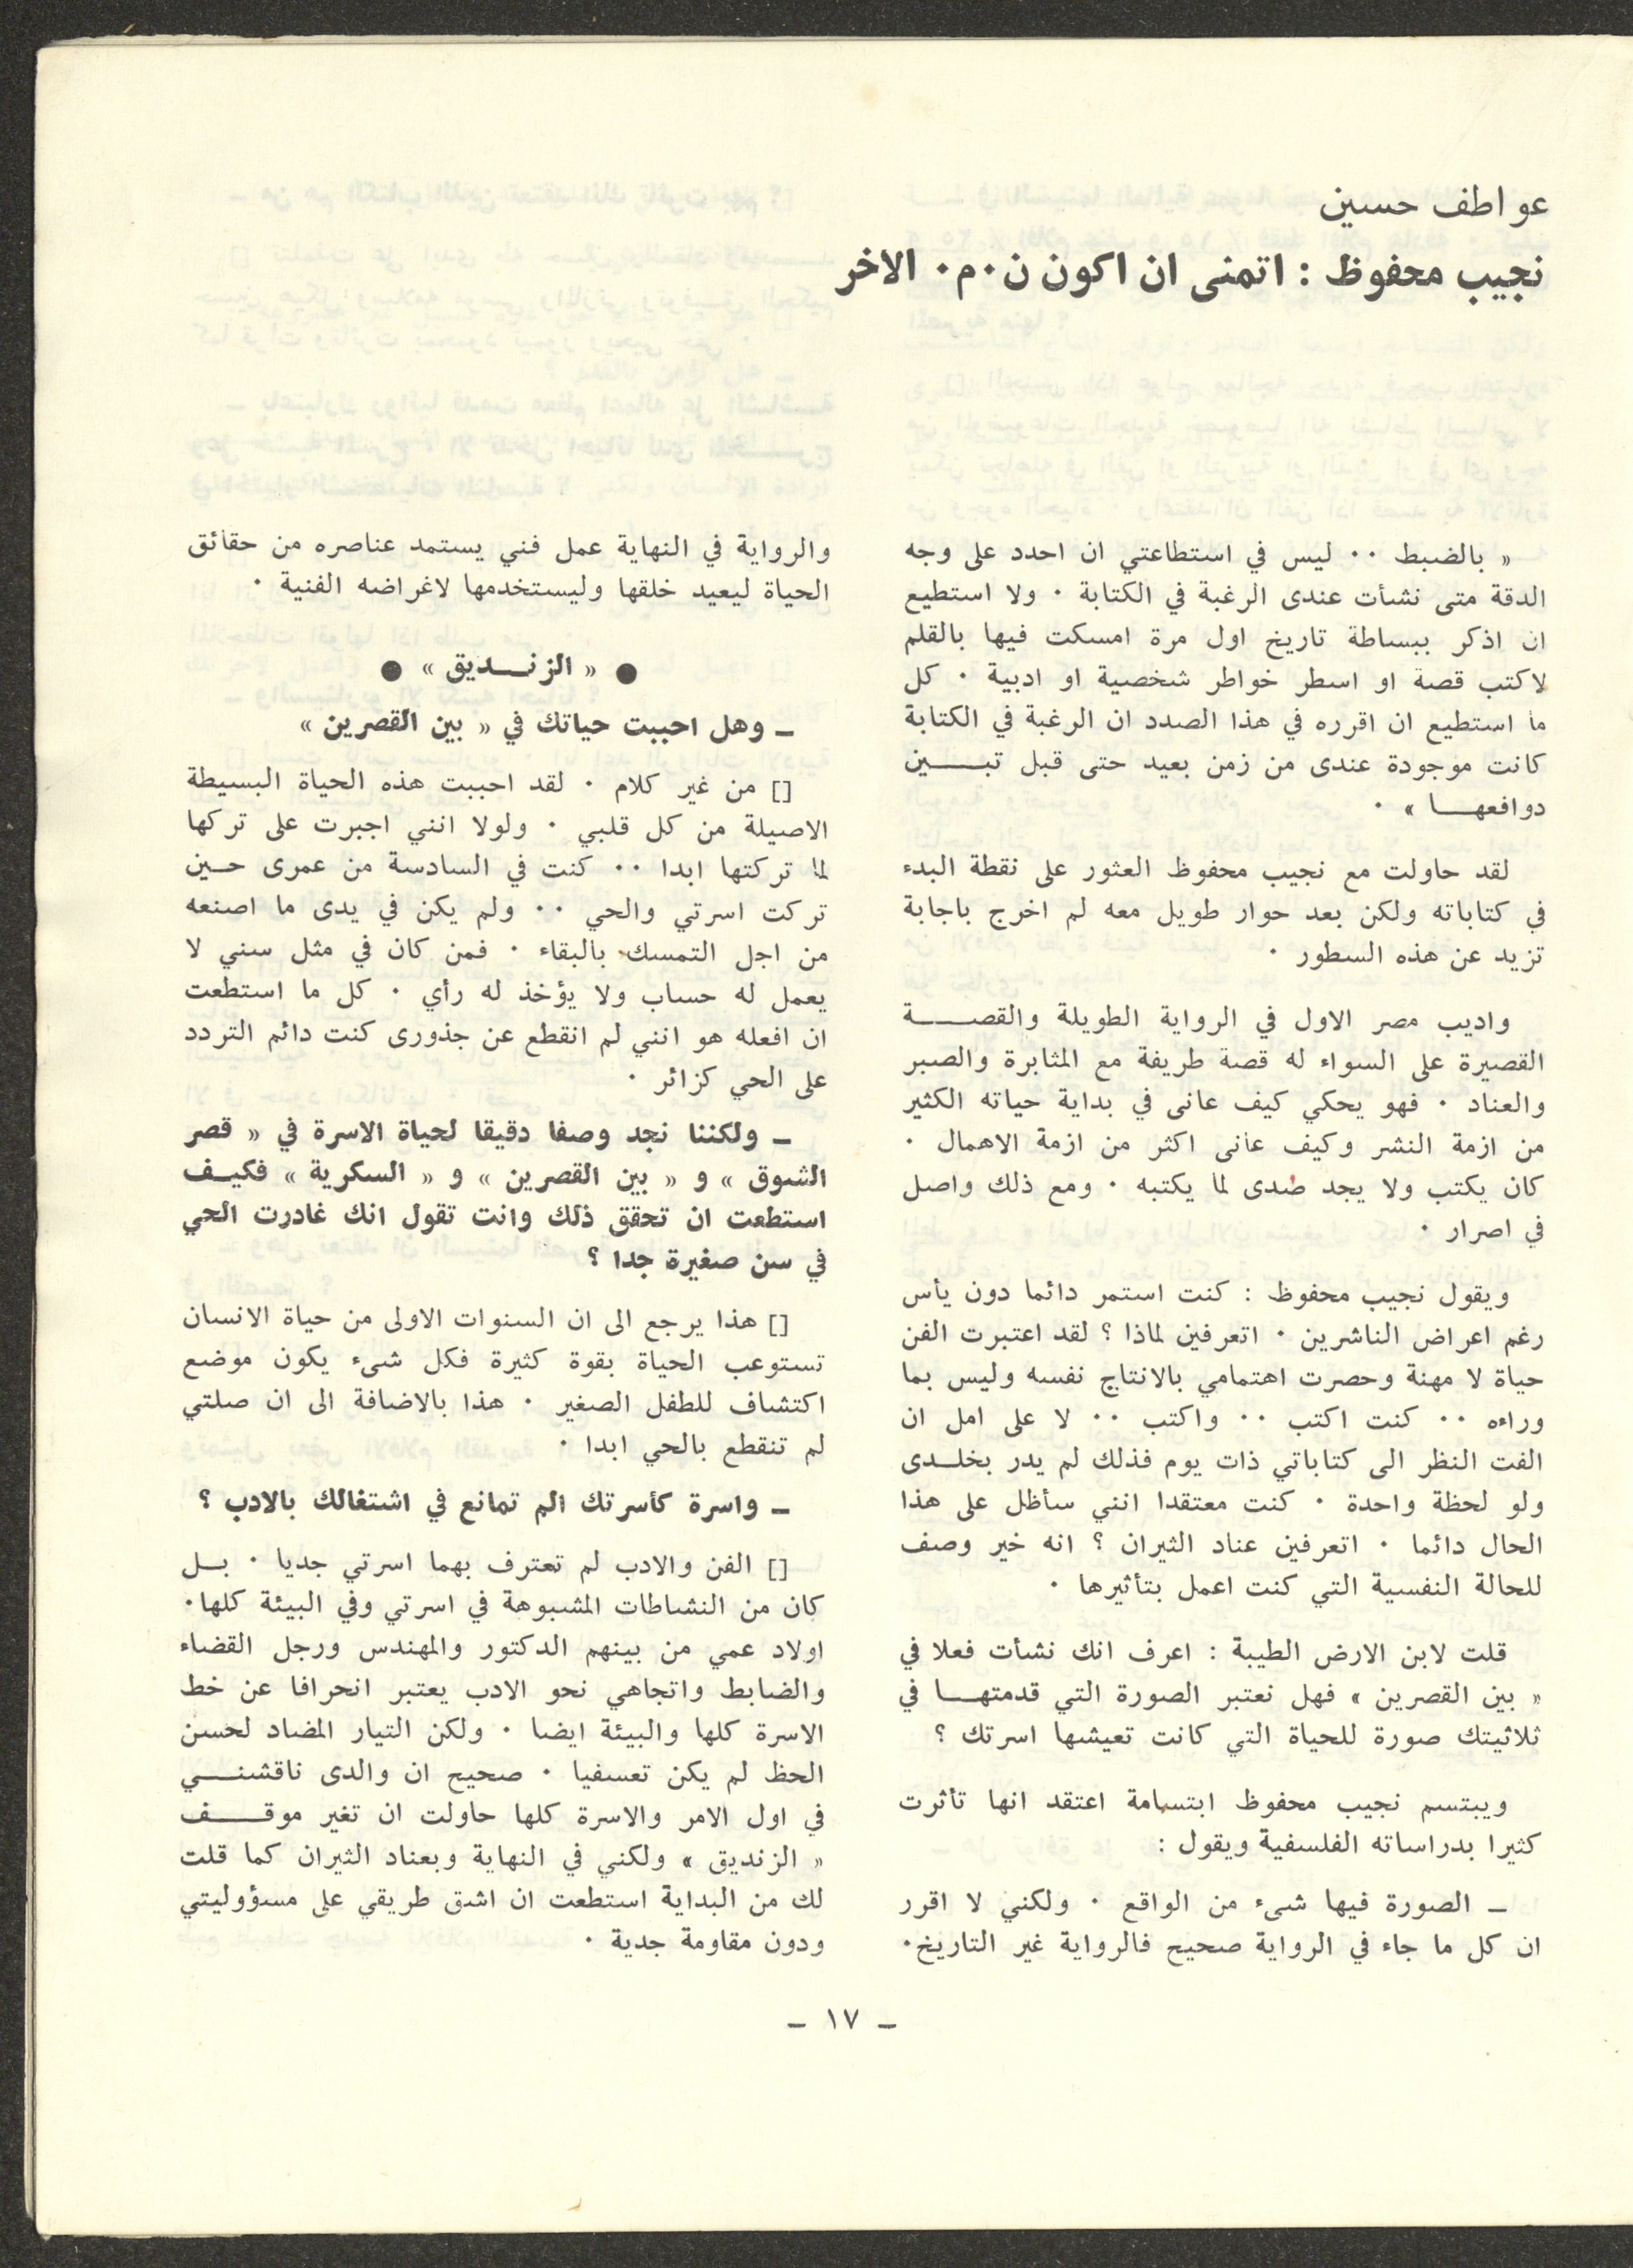 عواطف حسين
نجيب محفوظ : اتمنى ان اكون ن٠م٠ الاخر
« بالضبط ٠٠ ليس في استطاعتي ان احدد على وجه
الدقة متى نشأت عندى الرغبة في الكتابة ٠ ولا استطيع
ان اذكر ببساطة تاريخ اول مرة امسكت فيها بالقلم
لاكتب قصة او اسطر خواطر شخصية او ادبية ٠ كل
ما استطيع ان اقرره في هذا الصدد ان الرغبة في الكتابة
كانت موجودة عندى من زمن بعيد حتى قبل تبـــين
دوافعهـــا » ٠
لقد حاولت مع نجيب محفوظ العثور على نقطة البدء
في كتاباته ولكن بعد حوار طويل معه لم اخرج باجابة
تزيد عن هذه السطور ٠
واديب مصر الاول في الرواية الطويلة والقصـــة
القصيرة على السواء له قصة طريفة مع المثابرة والصبر
والعناد ٠ فهو يحكي كيف عانى في بداية حياته الكثير
من ازمة النشر وكيف عانى اكثر من ازمة الاهمال ٠
كان يكتب ولا يجد صدى لما يكتبه ٠ ومع ذلك واصل
في اصرار ٠
ويقول نجيب محفوظ : كنت استمر دائما دون يأس
رغم اعراض الناشرين ٠ اتعرفين لماذا ؟ لقد اعتبرت الفن
حياة لا مهنة وحصرت اهتمامي بالانتاج نفسه وليس بما
وراءه ٠٠ كنت اكتب ٠٠ واكتب ٠٠ لا على امل ان
الفت النظر الى كتاباتي ذات يوم فذلك لم يدر بخلــدى
ولو لحظة واحدة ٠ كنت معتقدا انني سأظل على هذا
الحال دائما ٠ اتعرفين عناد الثيران ؟ انه خير وصف
للحالة النفسية التي كنت اعمل بتأثيرها ٠
قلت لابن الارض الطيبة : اعرف انك نشأت فعلا في
« بين القصرين » فهل نعتبر الصورة التي قدمتهـــا في
ثلاثيتك صورة للحياة التي كانت تعيشها اسرتك ؟
ويبتسم نجيب محفوظ ابتسامة اعتقد انها تأثرت
كثيرا بدراساته الفلسفية ويقول :
ـ الصورة فيها شىء من الواقع ٠ ولكني لا اقرر
ان كل ما جاء في الرواية صحيح فالرواية غير التاريخ٠
والرواية في النهاية عمل فني يستمد عناصره من حقائق
الحياة ليعيد خلقها وليستخدمها لاغراضه الفنية ٠
● « الزنـــديق » ●
ـ وهل احببت حياتك في « بين القصرين »
[] من غير كلام ٠ لقد احببت هذه الحياة البسيطة
الاصيلة من كل قلبي ٠ ولولا انني اجبرت على تركها
لما تركتها ابدا ٠٠ كنت في السادسة من عمرى حــين
تركت اسرتي والحي ٠٠ ولم يكن في يدى ما اصنعه
من اجل التمسك بالبقاء ٠ فمن كان في مثل سني لا
يعمل له حساب ولا يؤخذ له رأي ٠ كل ما استطعت
ان افعله هو انني لم انقطع عن جذورى كنت دائم التردد
على الحي كزائر ٠
ـ ولكننا نجد وصفا دقيقا لحياة الاسرة في « قصر
الشوق » و « بين القصرين » و « السكرية » فكيــف
استطعت ان تحقق ذلك وانت تقول انك غادرت الحي
في سن صغيرة جدا ؟
[] هذا يرجع الى ان السنوات الاولى من حياة الانسان
تستوعب الحياة بقوة كثيرة فكل شىء يكون موضع
اكتشاف للطفل الصغير ٠ هذا بالاضافة الى ان صلتي
لم تنقطع بالحي ابدا ٠
ـ واسرة كأسرتك الم تمانع في اشتغالك بالادب ؟
[] الفن والادب لم تعترف بهما اسرتي جديا ٠ بــل
كان من النشاطات المشبوهة في اسرتي وفي البيئة كلها٠
اولاد عمي من بينهم الدكتور والمهندس ورجل القضاء
والضابط واتجاهي نحو الادب يعتبر انحرافا عن خط
الاسرة كلها والبيئة ايضا ٠ ولكن التيار المضاد لحسن
الحظ لم يكن تعسفيا ٠ صحيح ان والدى ناقشنـــي
في اول الامر والاسرة كلها حاولت ان تغير موقـــف
« الزنديق » ولكني في النهاية وبعناد الثيران كما قلت
لك من البداية استطعت ان اشق طريقي على مسؤوليتي
ودون مقاومة جدية ٠
ـ ١٧ ـ